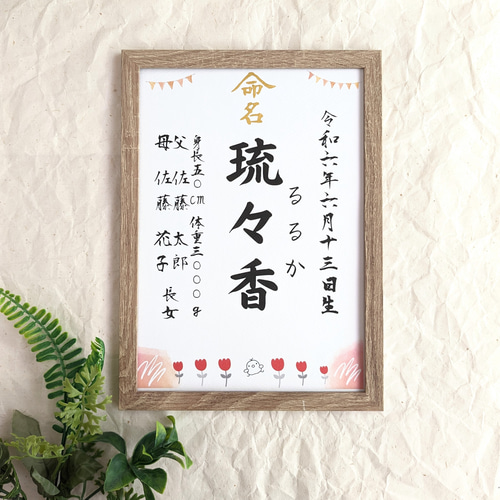 命名
令和六年六月十三日生
るるか
琉々香
身長五〇cm 体重三〇〇〇g
父 佐藤 太郎
母 佐藤 花子 長女